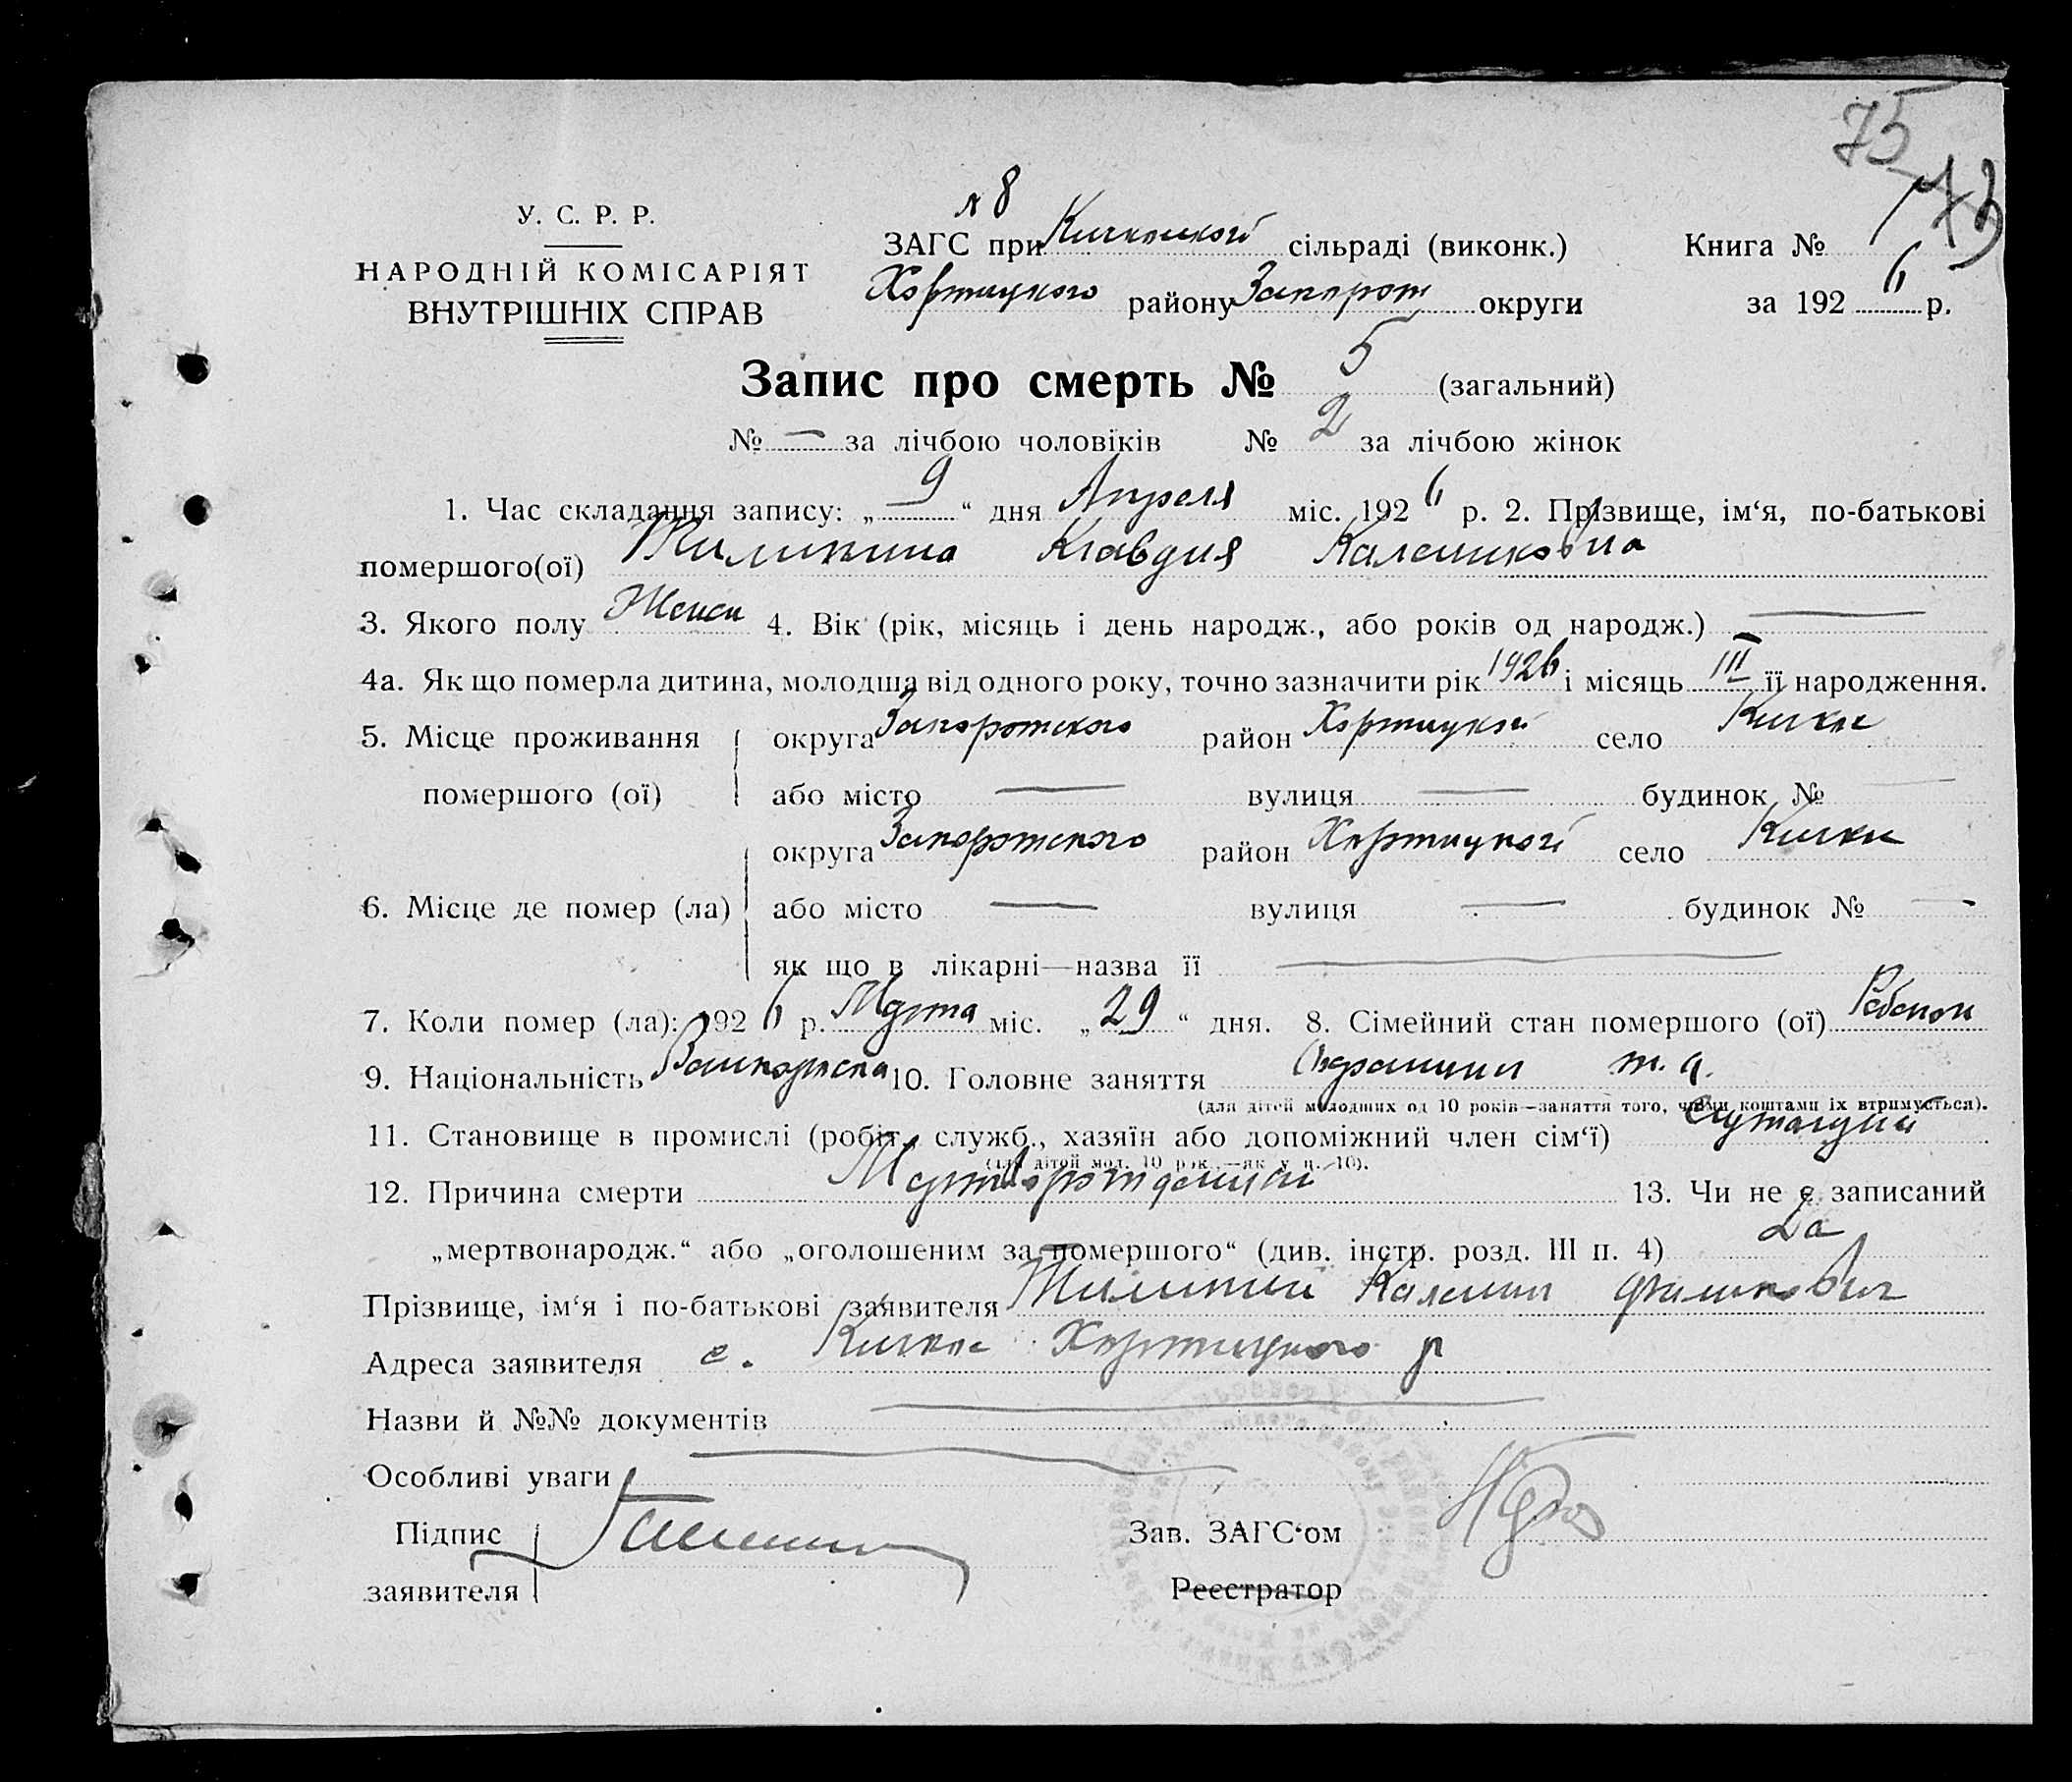 75
173
№ 8
У. С. Р. Р.
НАРОДНІЙ КОМІСАРІЯТ
ВНУТРІШНІХ СПРАВ
ЗАГС при Кичкаской сільраді (виконк.)
Хортицкого району Запорож округи
Книга №
за 1926 р.
Запис про смерть № 5 (загальний)
№ — за лічбою чоловіків № 2 за лічбою жінок
1. Час складання запису: „ 9 “ дня Апреля міс. 1926 р. 2. Прізвище, ім‘я, по-батькові
помершого(ої) Клавдия
3. Якого полу Женск 4. Вік (рік, місяць і день народж., або років од народж.) —
4а. Як що померла дитина, молодша від одного року, точно зазначити рік 1926 і місяць III її народження.
5. Місце проживання округа Запорожского район Хортицкой село Кичкас
помершого (ої) або місто — вулиця — будинок № —
округа Запорожского район Хортицкой село Кичкас
6. Місце де помер (ла) або місто — вулиця — будинок № —
як що в лікарні—назва її —
7. Коли помер (ла): 1926 р. Марта міс. „ 29 “ дня. 8. Сімейний стан помершого (ої) Ребенок
9. Національність 10. Головне заняття
(для дітей молодших од 10 років—заняття того, чиїми коштами їх втримується).
11. Становище в промислі (робіт., служб., хазяїн або допоміжний член сім‘ї)
(для дітей мол. 10 рок.,—як у п. 10).
12. Причина смерти Мертворожденный 13. Чи не є записаний
„мертвонародж.“ або „оголошеним за помершого“ (див. інстр. розд. III п. 4) Да
Прізвище, ім‘я і по-батькові заявителя
Адреса заявителя с. Кичкас Хортицкого р
Назви й №№ документів —
Особливі уваги —
Підпис
заявителя
Зав. ЗАГС‘ом
Реєстратор